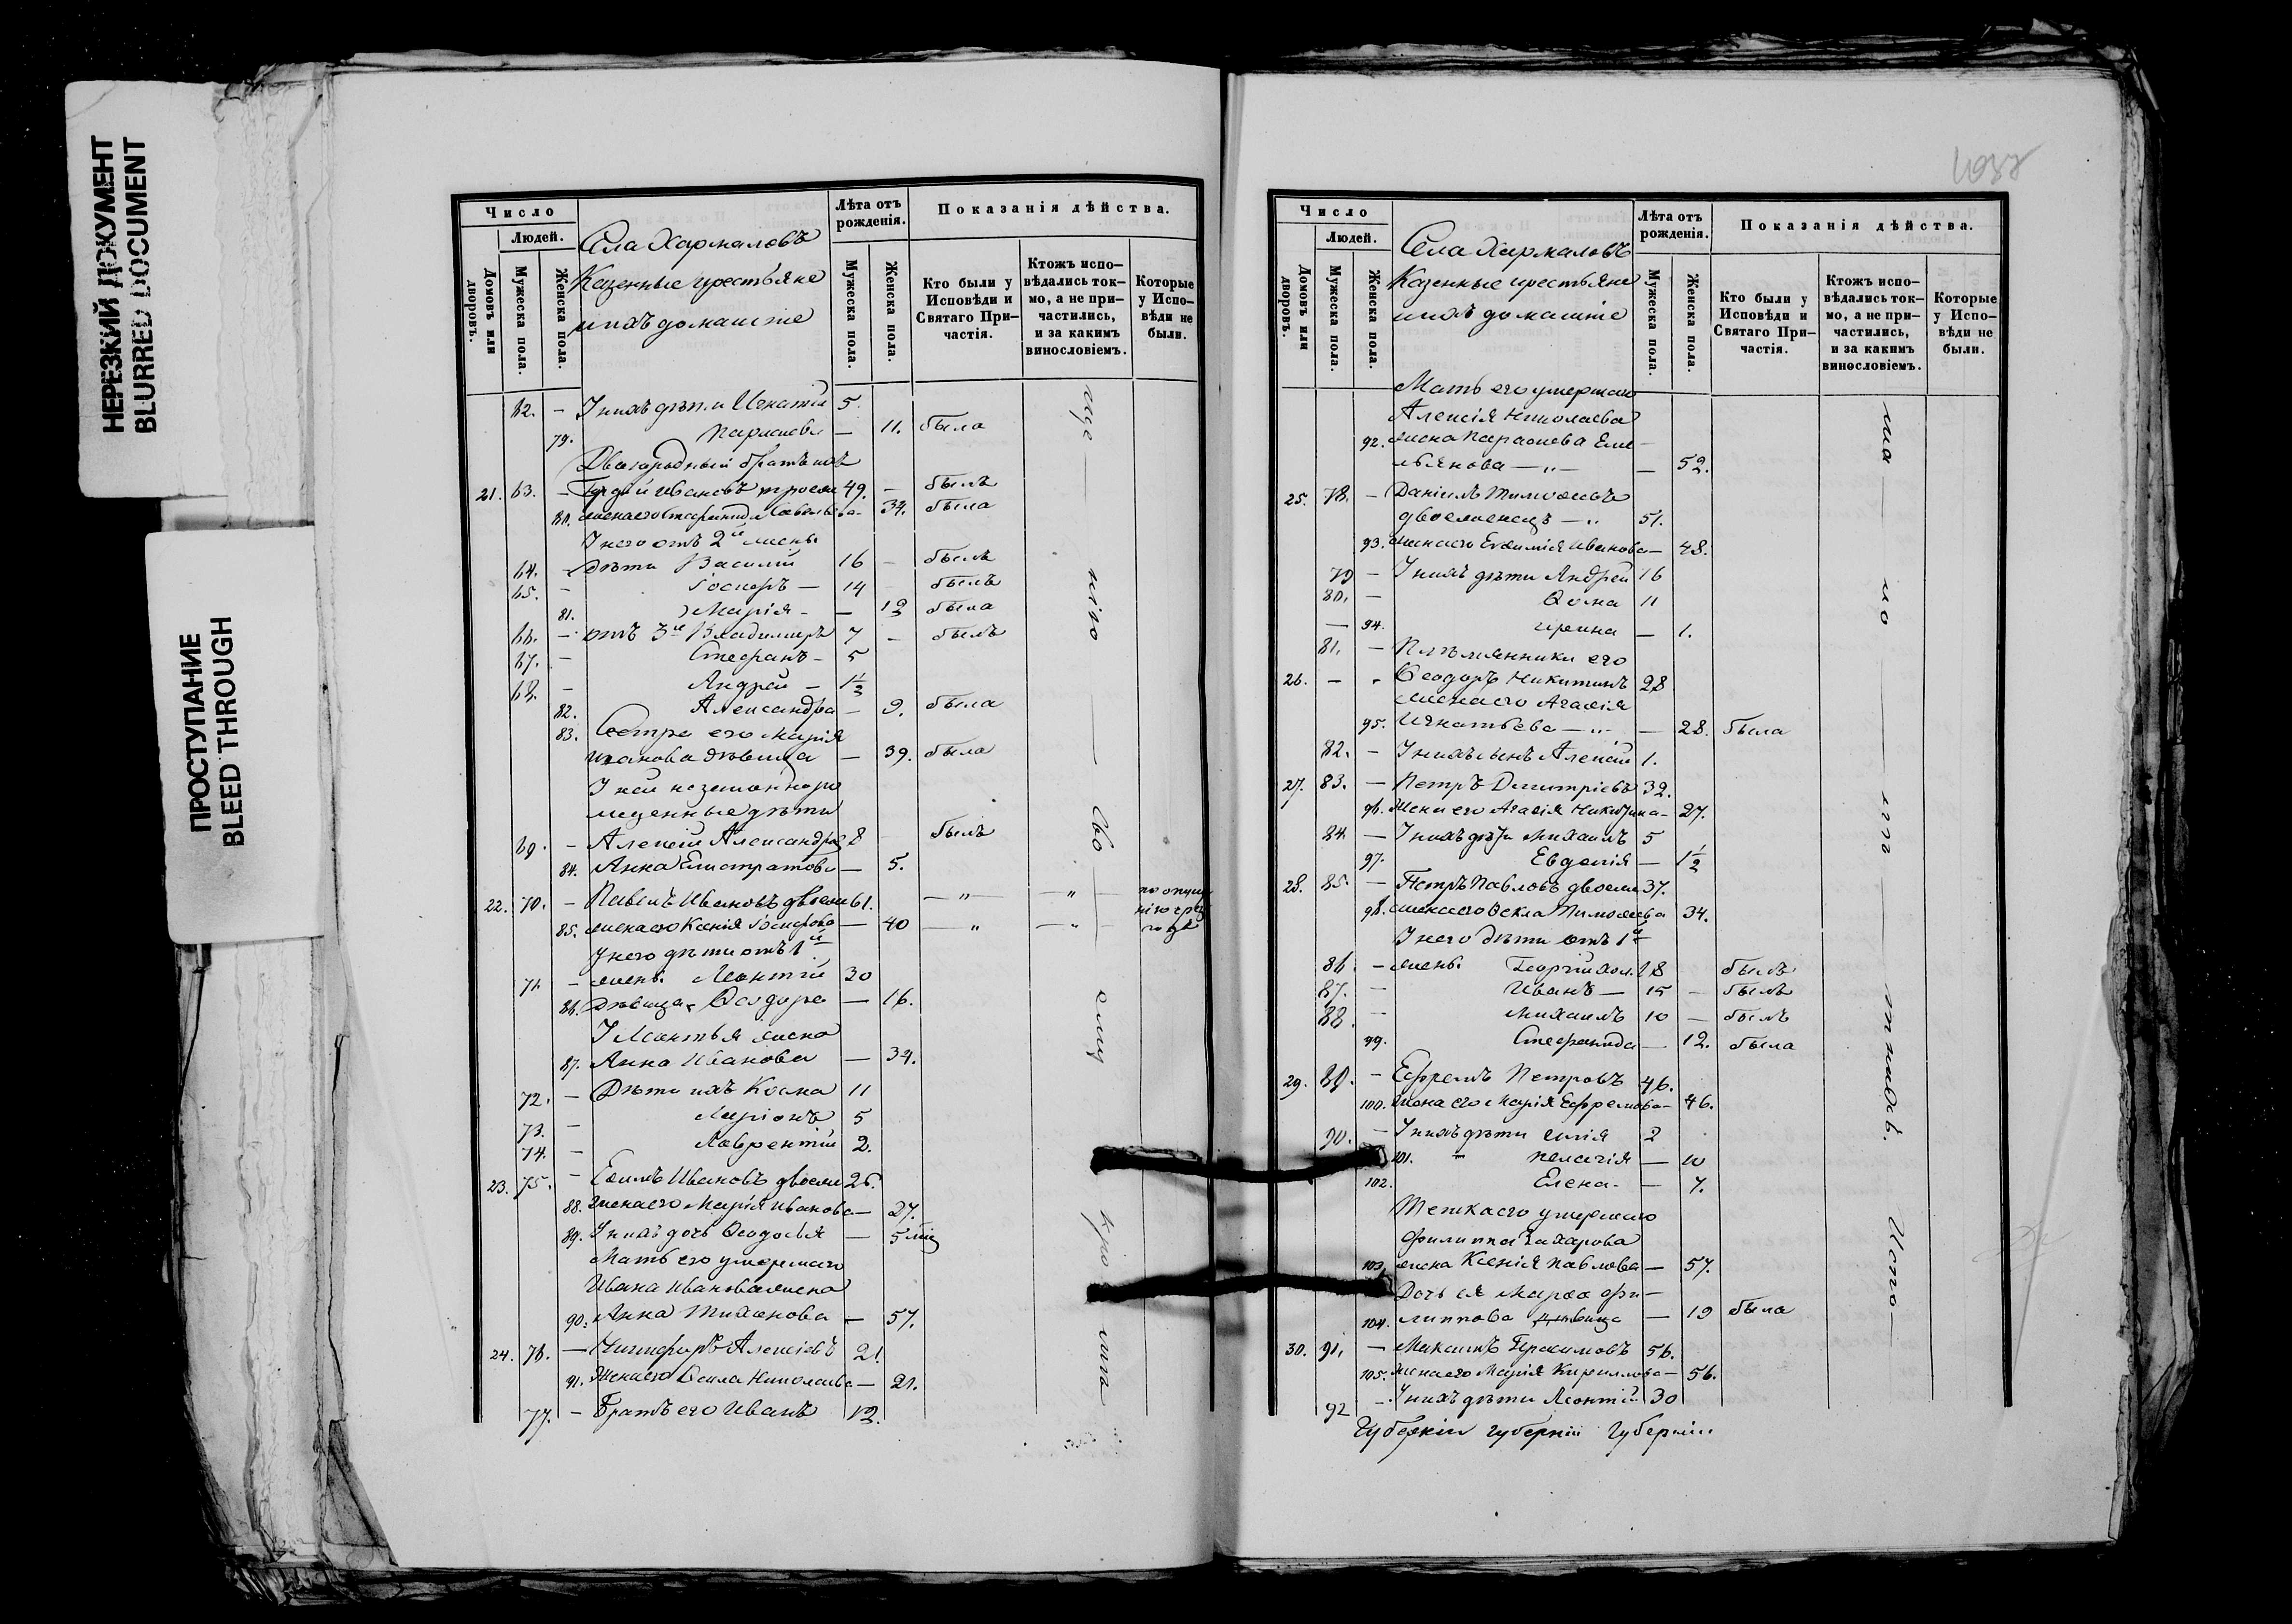 НЕРЕЗКИЙ ДОКУМЕНТ
BLURRED DOCUMENT
ПРОСТУПАНИЕ
BLEED THROUGH
Число
Людей.
Домовъ или дворовъ.
Мужеска пола.
Женска пола.
Села Хармаловъ
Казенные крестьяне
и ихъ домашніе
Лѣта отъ рожденія.
Мужеска пола.
Женска пола.
Показанія дѣйства.
Кто были у Исповѣди и Святаго Причастія.
Ктожъ исповѣдались токмо, а не причастились, и за какимъ винословіемъ.
Которые у Исповѣди не были.
62. – У нихъ дѣти Игнатій 5.
79. – 11. была
Двоюродный братъ
21. 63. – Гордій Ивановъ 49. – былъ
80. жена его Стефанида – 34. была
У него отъ 2й жены
64. – дѣти Василій 16 – былъ
65. – 14 – былъ
81. Марія – – 12 была
66. – отъ 3й Владимиръ 7 – былъ
67. – Стефанъ – 5
68. – Андрей – 1½
82. Александра – 9. была
83. Сестра его Марія
Иванова дѣвица – 39. была
У ней незаконнорожденные дѣти
69. – Алексій Александровъ 8 былъ
84. Анна – 5.
22. 70. – Павелъ Ивановъ двоеж 61. – „ – – „ –
85. жена его Ксенія – 40 – „ – „ –
У него дѣти отъ 1й
71. – жены Леонтій 30
86. Дѣвица Ѳеодора – 16.
У Леонтья жена
87. Анна Иванова – 34.
72. – Дѣти ихъ Косма 11
73. – 5
74. – Лаврентій 2.
23. 75. – Ивановъ двоеж 26.
88. жена его Марія Иванова – 27.
89. У нихъ дочь Ѳеодосія – 5 мѣс
Мать его умершаго
Ивана Иванова жена
90. Анна Тиханова – 57.
24. 76. – Никифоръ Алексіевъ 21.
91. Жена его Николаева – 21.
77. – Братъ его Иванъ 12.
Число
Людей.
Домовъ или дворовъ.
Мужеска пола.
Женска пола.
Села Хармаловъ
Казенные крестьяне
и ихъ домашніе
Лѣта отъ рожденія.
Мужеска пола.
Женска пола.
Показанія дѣйства.
Кто были у Исповѣди и Святаго Причастія.
Ктожъ исповѣдались токмо, а не причастились, и за какимъ винословіемъ.
Которые у Исповѣди не были.
Мать его умершаго
Алексія Николаева
92. жена Параскева Еме-
льянова – „ – – 52.
25. 78. – Даніилъ Тимоѳеевъ
двоеженецъ – „ 51.
93. жена его Евѳимія Иванова – 48.
79 – У нихъ дѣти Андрей 16
80. – Ѳома 11
– 94. Ирина – 1.
81. – Племянники его
26. – – Ѳеодоръ Никитинъ 28
жена его Агафія
95. Игнатьева – „ – – 28. была
82. – У нихъ сынъ Алексій 1.
27. 83. – Петръ Димитріевъ 32.
96. Жена его Агафія Никитина – 27.
84. – У нихъ дѣти Михаилъ 5
97. Евдокія – 1½
28. 85. – Петръ Павловъ двоеж 37.
98. жена его Ѳекла Тимоѳеева 34.
У него дѣти отъ 1й
86. – жены Георгій хол. 18 былъ
87. – Иванъ – 15 – былъ
88. – Михаилъ 10 – былъ
99. Стефанида – 12. была
29. 89. – Ефремъ Петровъ 46.
100. Жена его Марія Ефремова – 46.
90. – У нихъ дѣти Илія 2
101. – Пелагія – 10
102. Елена – – 7.
Тетка его умершаго
Филиппа Захарова
103. жена Ксенія Павлова – 57.
Дочь ея Марѳа Фи-
104. липпова дѣвица – 19 была
30. 91. – Максимъ Герасимовъ 56.
105. Жена его Марія Кириллова – 56.
92 – У нихъ дѣти Леонтій 30
губерніи губерніи